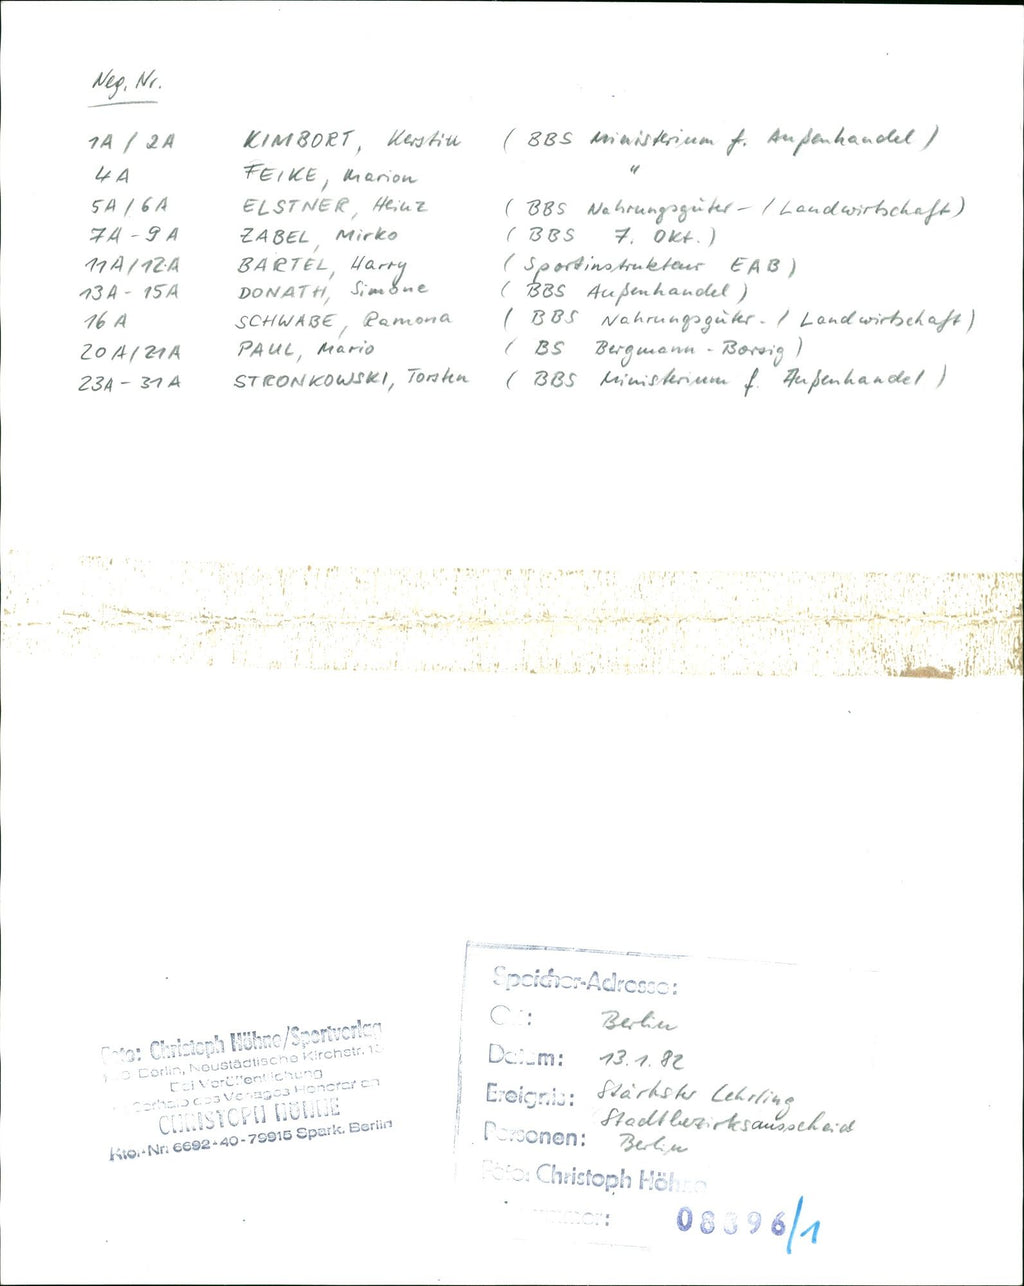 Neg. Nr.
1A / 2A KIMBORT, Kerstin ( BBS Ministerium f. Außenhandel )
4A FEIKE, Marion "
5A / 6A ELSTNER, Heinz ( BBS Nahrungsgüter - / Landwirtschaft )
7A - 9A ZABEL, Mirko ( BBS 7. Okt. )
11A / 12A BARTEL, Harry ( Sportinstrukteur EAB )
13A - 15A DONATH, Simone ( BBS Außenhandel )
16A SCHWABE, Ramona ( BBS Nahrungsgüter - / Landwirtschaft )
20A / 21A PAUL, Mario ( BS Bergmann - Borsig )
23A - 31A STRONKOWSKI, Torsten ( BBS Ministerium f. Außenhandel )
Foto: Christoph Höhne/Sportverlag
Berlin, Neustädtische Kirchstr. 15
Bei Veröffentlichung
des Verlages Honorar an
CHRISTOPH HÖHNE
Kto.-Nr: 6692-40-79915 Spark. Berlin
Speicher-Adresse:
Ort: Berlin
Datum: 13.1.82
Ereignis: Stärkster Lehrling
Stadtbezirksausscheid
Personen: Berlin
Foto: Christoph Höhne
08396/1